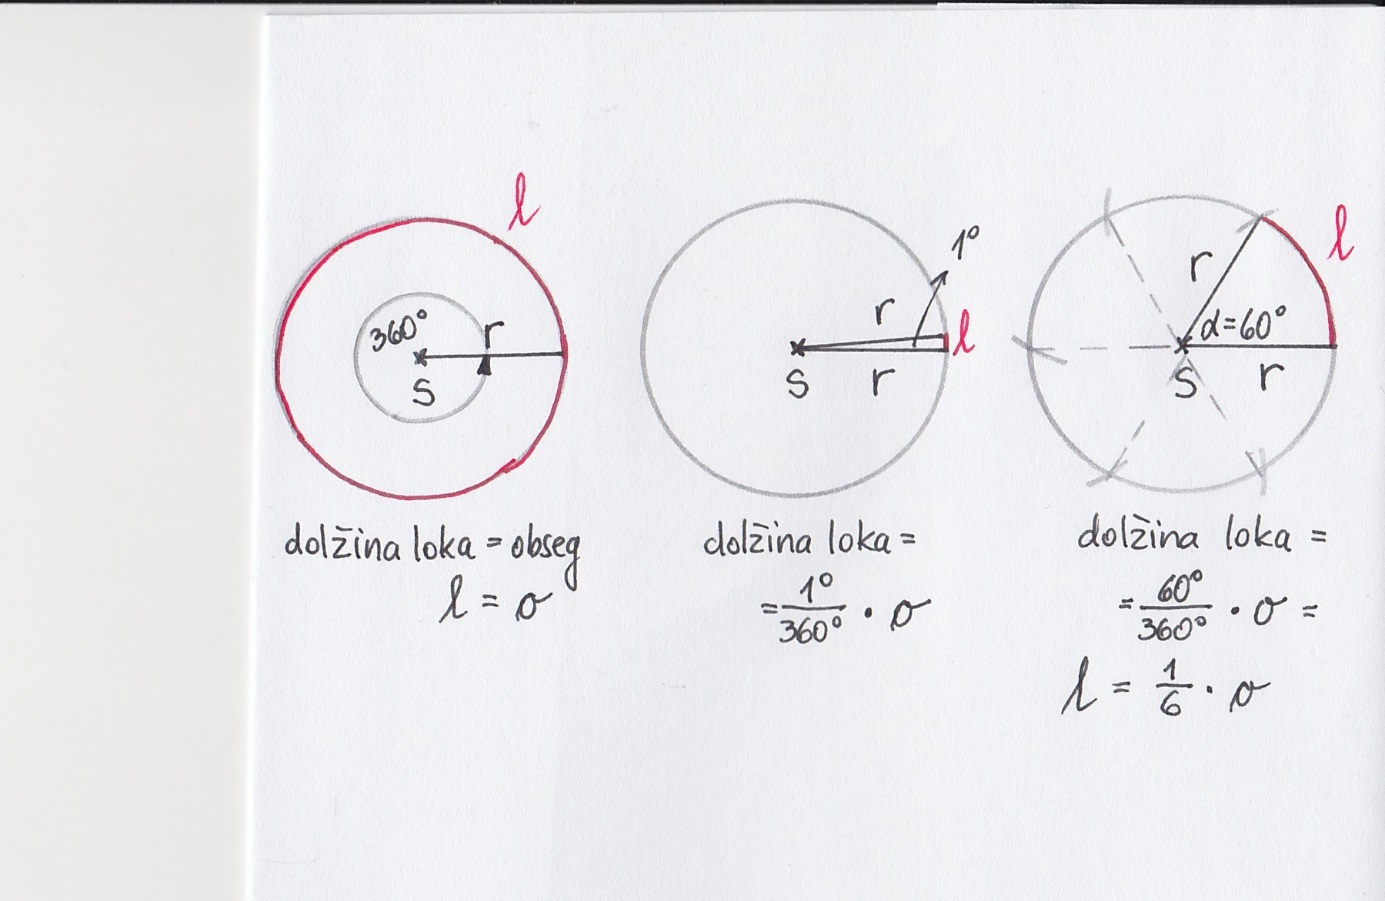 l
360°
r
S
dolžina loka = obseg
l = o
1°
r
l
S
r
dolžina loka =
= 1°/360° · o
l
r
α=60°
S
r
dolžina loka =
= 60°/360° · o =
l = 1/6 · o